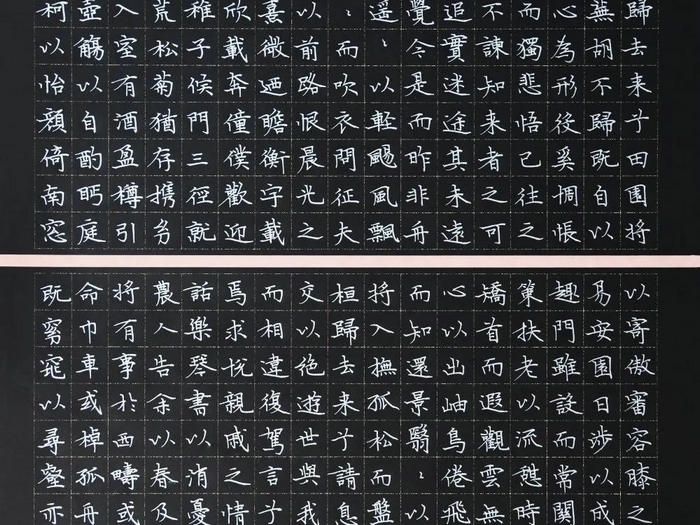 歸去来兮田園将
蕪胡不歸既自以
心為形役奚惆悵
而獨悲悟已往之
不諫知来者之可
追實迷途其未遠
覺今是而昨非舟
遥〻以輕颺風飄
〻而吹衣問征夫
以前路恨晨光之
熹微迺瞻衡宇載
欣載奔僮僕歡迎
稚子候門三徑就
荒松菊猶存攜幼
入室有酒盈樽引
壺觴以自酌眄庭
柯以怡顏倚南窓
以寄傲審容膝之
易安園日涉以成
趣門雖設而常關
策扶老以流憩時
矯首而遐觀雲無
心以出岫鳥倦飛
而知還景翳〻以
将入撫孤松而盤
桓歸去来兮請息
交以絶遊世與我
而相違復駕言兮
焉求悅親戚之情
話樂琴書以消憂
農人告余以春及
将有事於西疇或
命巾車或棹孤舟
既窈窕以尋壑亦